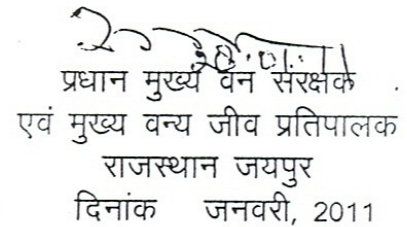 प्रधान मुख्य वन संरक्षक
एवं मुख्य वन्य जीव प्रतिपालक
राजस्थान जयपुर
दिनांक जनवरी, 2011